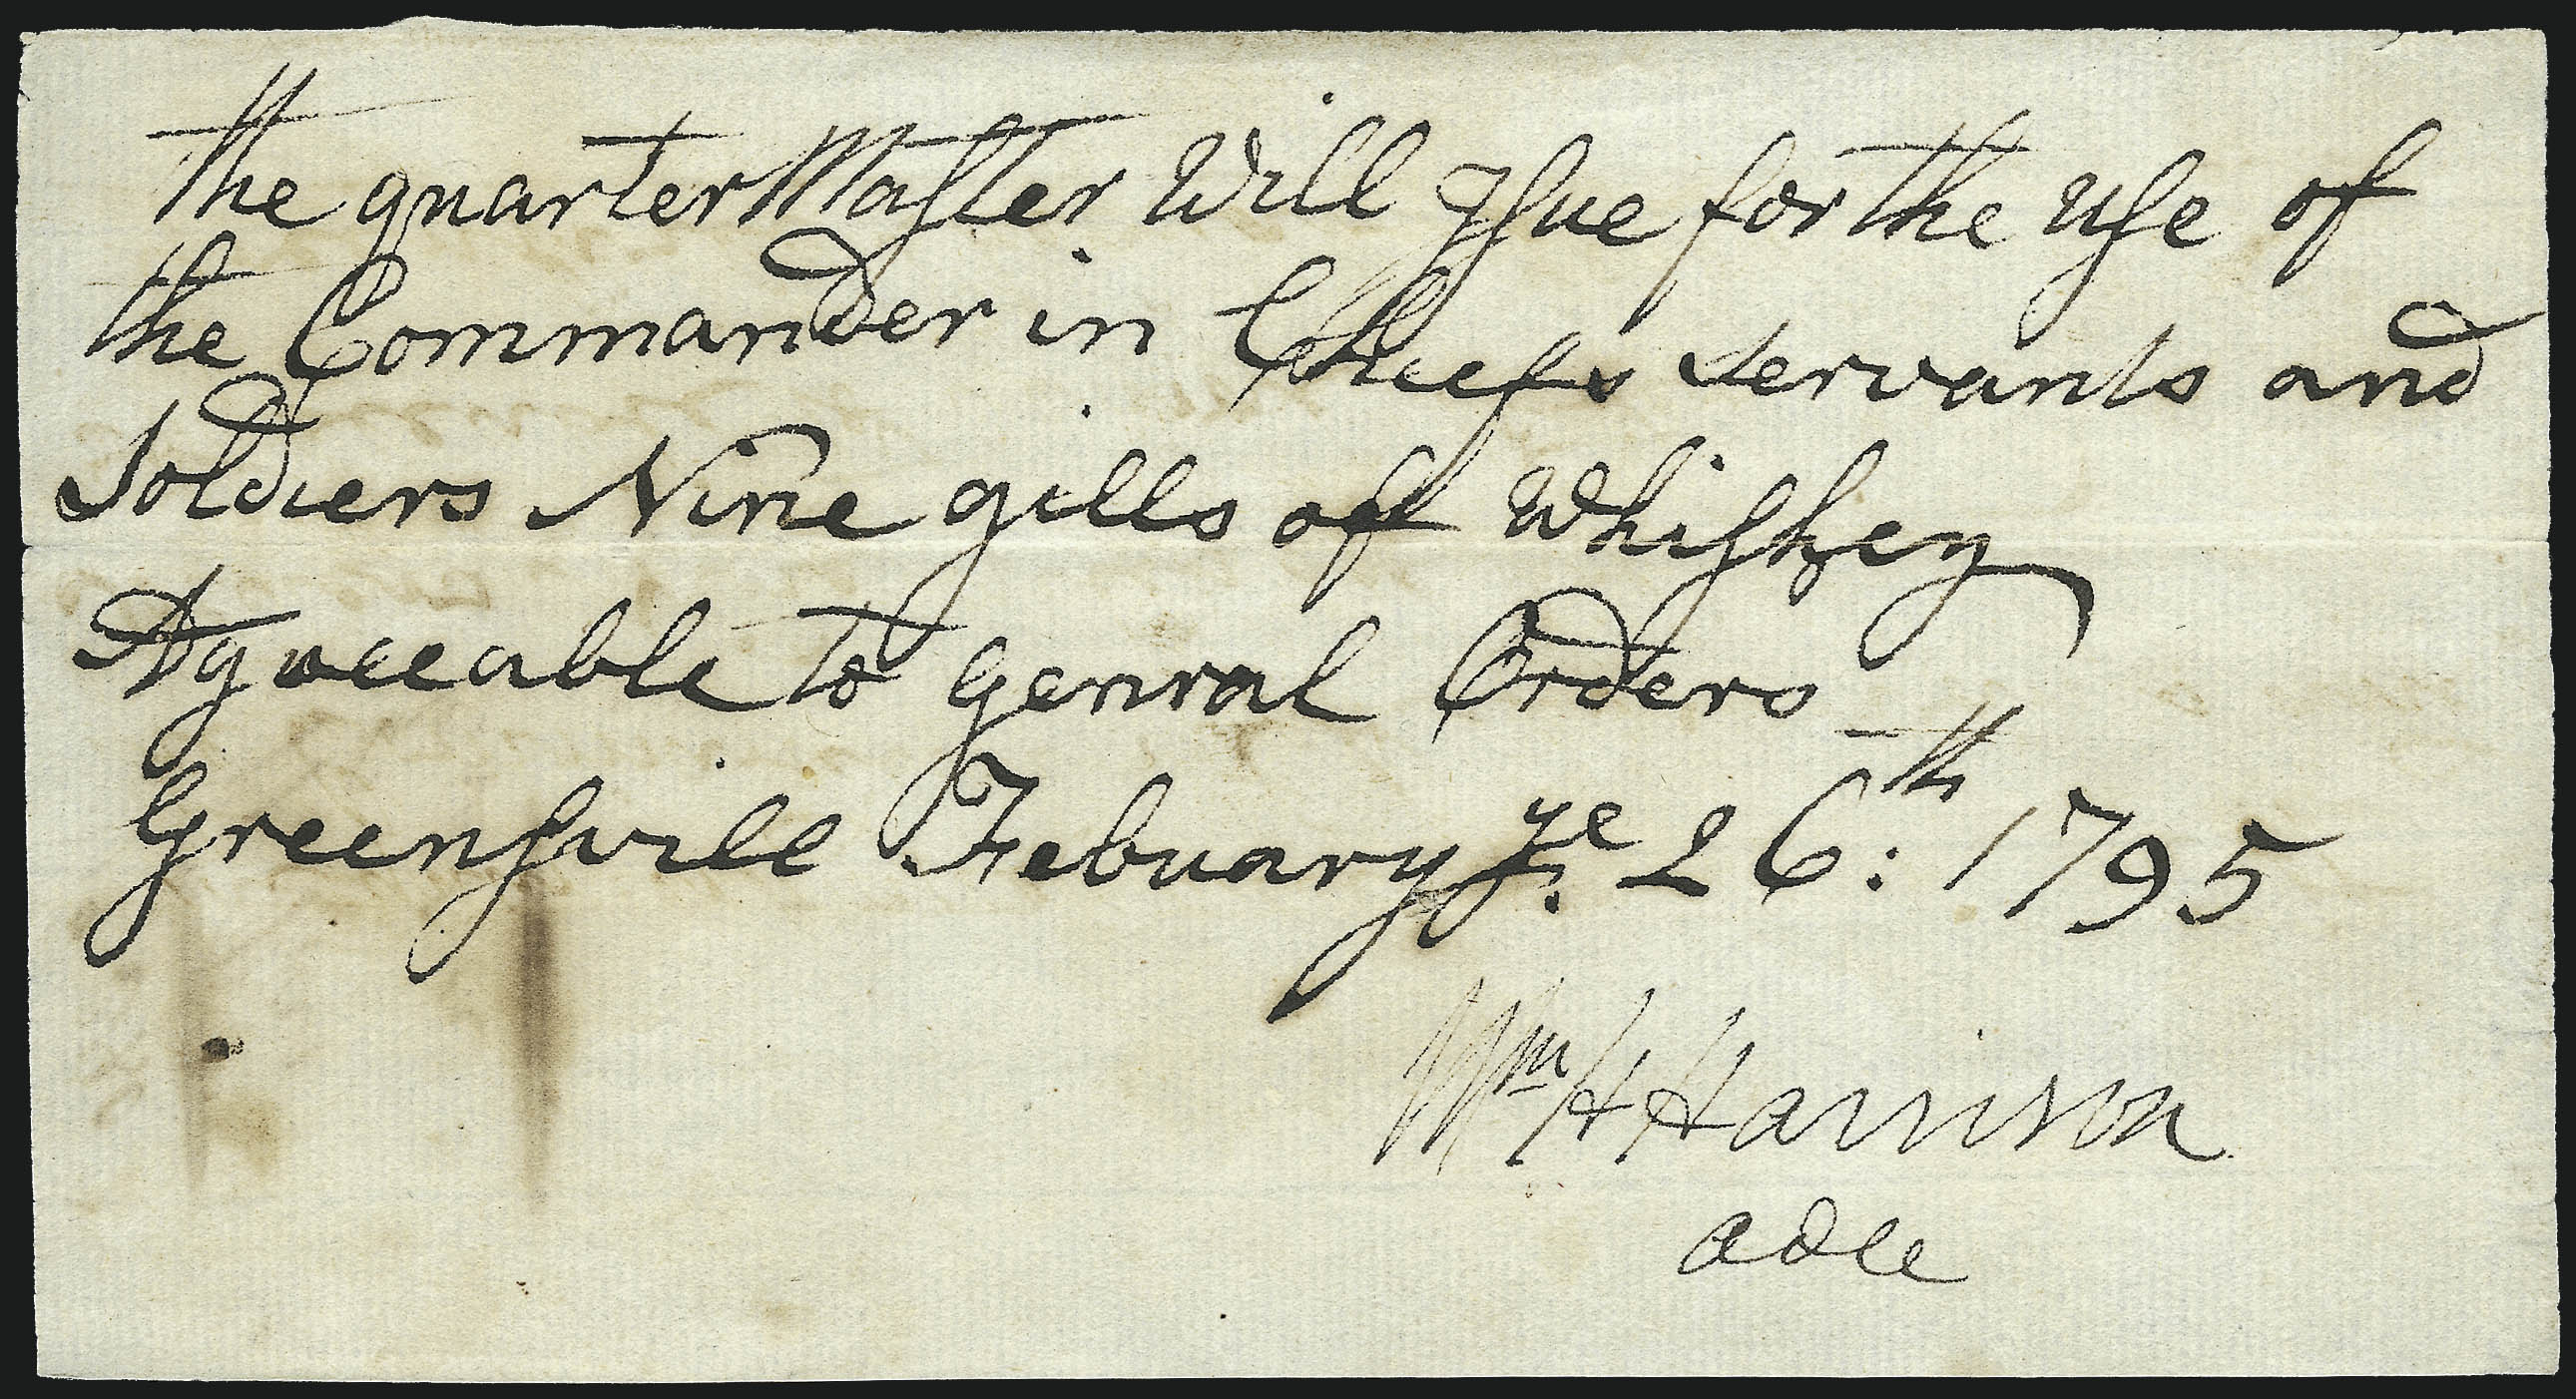 the quarter Master Will Issue for the Use of
the Commander in Cheefs Servants and
Soldiers Nine gills of Whiskey
Agreeable to genral Orders
Greensvill Febuary ye 26th: 1795
Wm H Harrison
adce